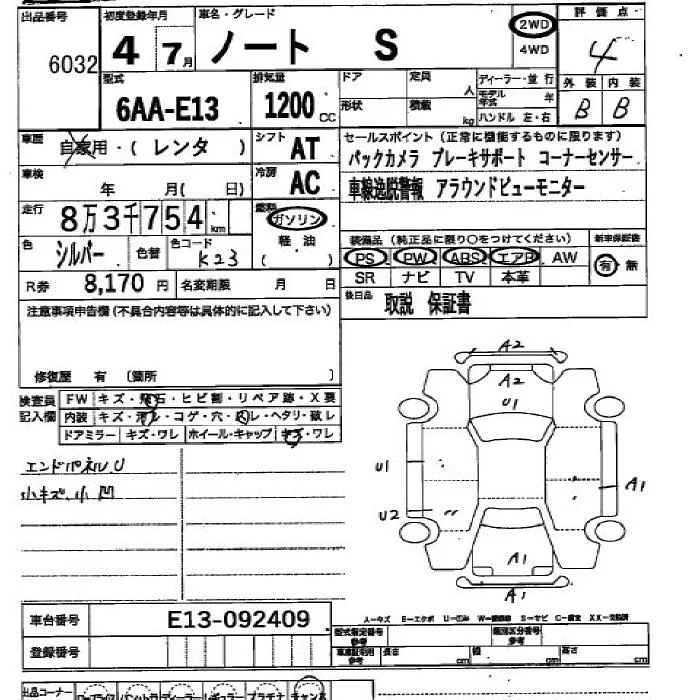 出品番号 初度登録年月 車名・グレード 2WD 評価点
6032 4 7月 ノート S 4WD 4
型式 排気量 ドア 定員 人 ディーラー・並行 外装 内装
6AA-E13 1200 CC 形状 積載 kg モデル年式 年 B B
ハンドル 左・右
車歴 自家用・( レンタ ) シフト AT セールスポイント (正常に機能するものに限ります)
バックカメラ ブレーキサポート コーナーセンサー
車検 年 月( 日) 冷房 AC 車線逸脱警報 アラウンドビューモニター
走行 8万3千754km 燃料 ガソリン
軽油
( )
色 シルバー 色替 色コード K23 装備品 (純正品に限り○をつけてください) 新車保証書
PS PW ABS エアB AW 有・無
R券 8,170 円 名変期限 月 日 SR ナビ TV 本革
注意事項申告欄 (不具合内容等は具体的に記入して下さい) 後日品 取説 保証書
修復歴 有 〔箇所 〕
検査員記入欄 FW キズ・飛石・ヒビ割・リペア跡・X要
内装 キズ・汚レ・コゲ・穴・スレ・ヘタリ・破レ
ドアミラー キズ・ワレ ホイール・キャップ キズ・ワレ
エンドパネルU
小キズ、小凹
A2
A2
U1
U1
A1
U2
A1
A1
車台番号 E13-092409
A-キズ E-エクボ U-凹み S-サビ C-腐食 XX-交換済
型式指定番号 参考 類別区分番号 参考
登録番号 参考 長さ cm 幅 cm 高さ cm
出品コーナー